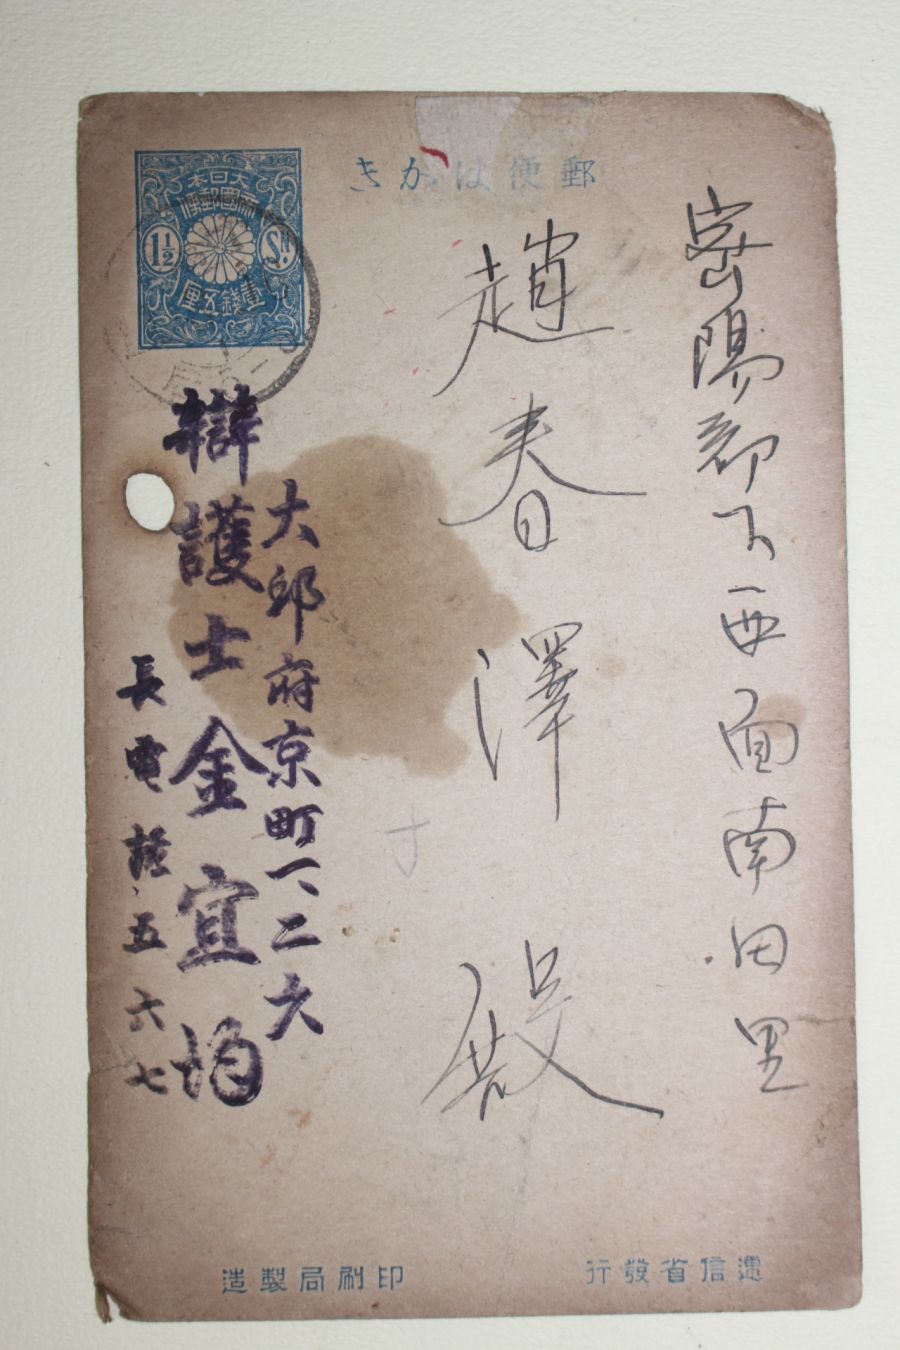 郵便はがき
大日本
帝國郵便
1½ Sn.
壹錢五厘
密陽郡下西面南田里
趙春澤殿
大邱府京町一、二六
辯護士金宜均
長電 五六七
遞信省發行
印刷局製造